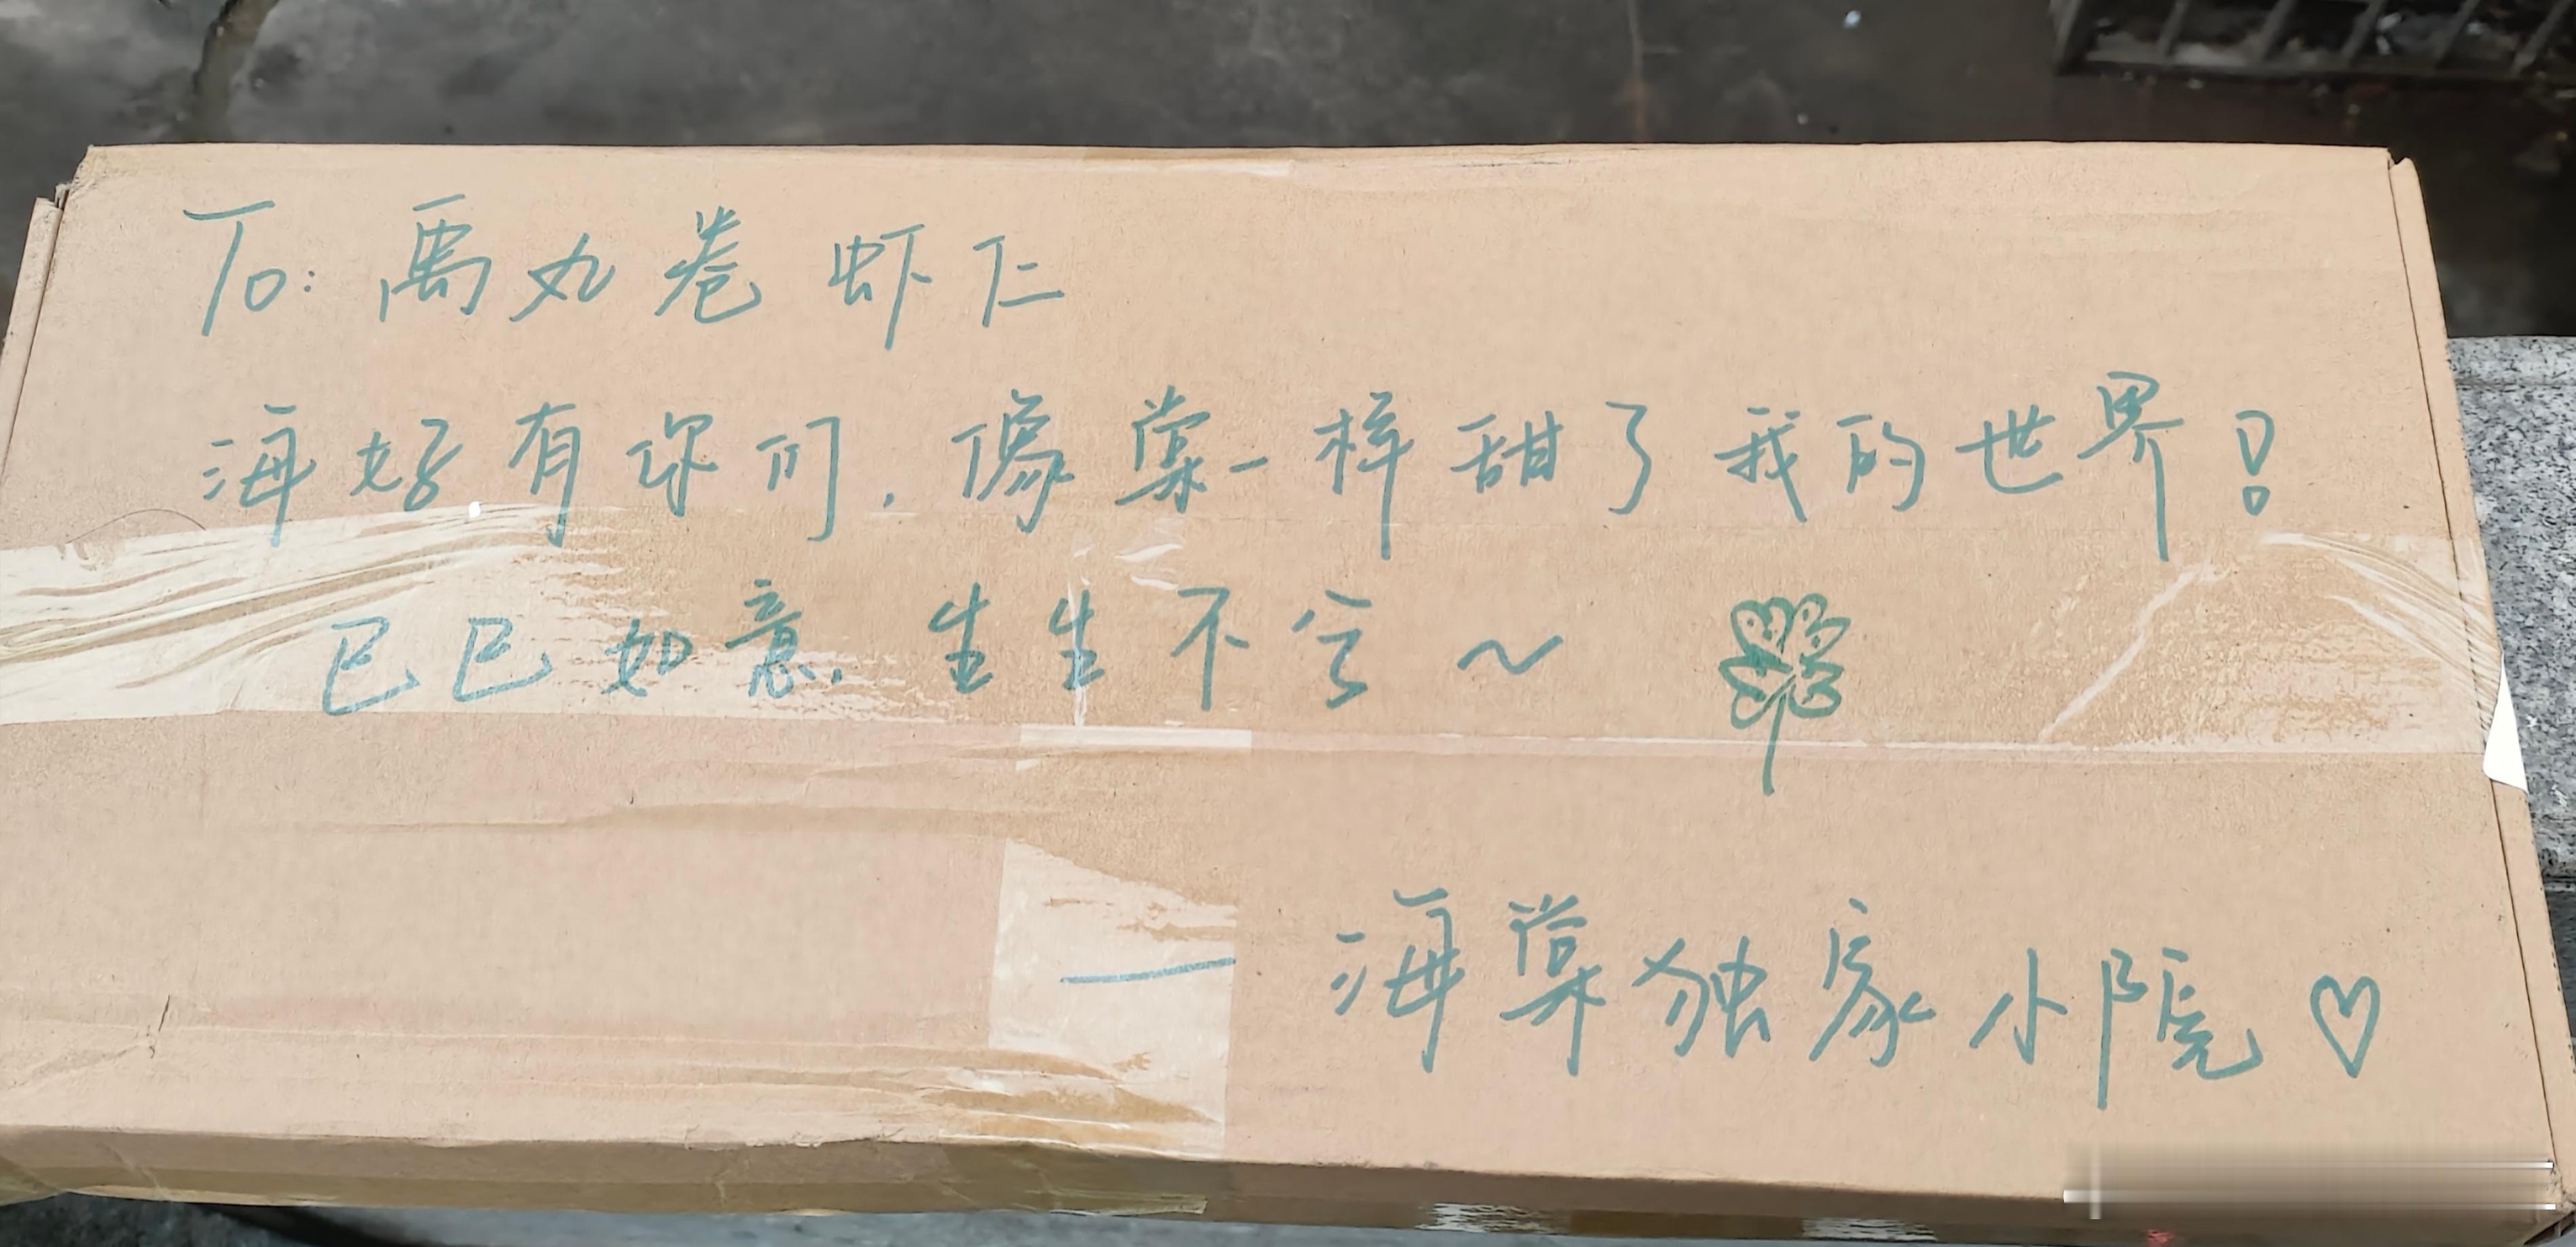 To: 禹丸卷虾仁
海好有你们，像棠一样甜了我的世界！
巳巳如意，生生不兮～
— 海棠独家小院♡